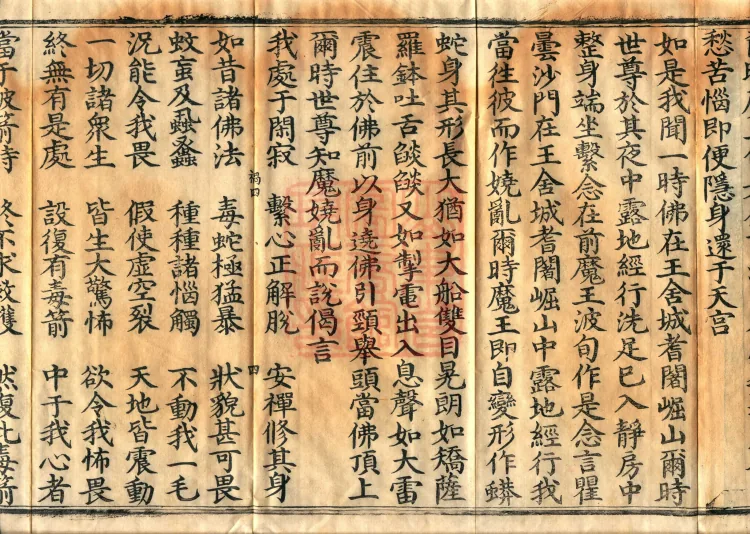 愁苦惱即便隱身還于天宮
如是我聞一時佛在王舍城耆闍崛山爾時
世尊於其夜中露地經行洗足已入靜房中
整身端坐繫念在前魔王波旬作是念言瞿
曇沙門在王舍城耆闍崛山中露地經行我
當往彼而作嬈亂爾時魔王即自變形作蟒
蛇身其形長大猶如大船雙目晃朗如橋薩
羅鉢吐舌燄燄又如掣電出入息聲如大雷
震住於佛前以身遶佛引頸舉頭當佛頂上
爾時世尊知魔嬈亂而說偈言
我處于閑寂 繫心正解脫 安禪修其身
如昔諸佛法 毒蛇極猛暴 狀貌甚可畏
蚊䖟及蝨蚤 種種諸惱觸 不動我一毛
況能令我畏 假使虛空裂 天地皆震動
一切諸眾生 皆生大驚怖 欲令我怖畏
終無有是處 設復有毒箭 中于我心者
當于被箭時 終不求救護 然復此毒箭